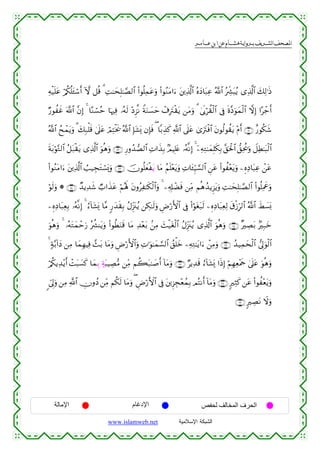 المصحف الشريف برواية هشام عن ابن عامر
ذَٰلِكَ ٱلَّذِى يُبَشِّرُ ٱللَّهُ عِبَادَهُ ٱلَّذِينَ ءَامَنُوا۟ وَعَمِلُوا۟ ٱلصَّٰلِحَٰتِ ۗ قُل لَّآ أَسْـَٔلُكُمْ عَلَيْهِ
أَجْرًا إِلَّا ٱلْمَوَدَّةَ فِى ٱلْقُرْبَىٰ ۗ وَمَن يَقْتَرِفْ حَسَنَةً نَّزِدْ لَهُۥ فِيهَا حُسْنًا ۚ إِنَّ ٱللَّهَ غَفُورٌ
شَكُورٌ أَمْ يَقُولُونَ ٱفْتَرَىٰ عَلَى ٱللَّهِ كَذِبًا ۖ فَإِن يَشَإِ ٱللَّهُ يَخْتِمْ عَلَىٰ قَلْبِكَ ۗ وَيَمْحُ ٱللَّهُ
ٱلْبَٰطِلَ وَيُحِقُّ ٱلْحَقَّ بِكَلِمَٰتِهِۦٓ ۚ إِنَّهُۥ عَلِيمٌۢ بِذَاتِ ٱلصُّدُورِ وَهُوَ ٱلَّذِى يَقْبَلُ ٱلتَّوْبَةَ
عَنْ عِبَادِهِۦ وَيَعْفُوا۟ عَنِ ٱلسَّيِّـَٔاتِ وَيَعْلَمُ مَا يَفْعَلُونَ وَيَسْتَجِيبُ ٱلَّذِينَ ءَامَنُوا۟
وَعَمِلُوا۟ ٱلصَّٰلِحَٰتِ وَيَزِيدُهُم مِّن فَضْلِهِۦ ۚ وَٱلْكَٰفِرُونَ لَهُمْ عَذَابٌ شَدِيدٌ ۞ وَلَوْ
بَسَطَ ٱللَّهُ ٱلرِّزْقَ لِعِبَادِهِۦ لَبَغَوْا۟ فِى ٱلْأَرْضِ وَلَٰكِن يُنَزِّلُ بِقَدَرٍ مَّا يَشَآءُ ۚ إِنَّهُۥ بِعِبَادِهِۦ
خَبِيرٌۢ بَصِيرٌ وَهُوَ ٱلَّذِى يُنَزِّلُ ٱلْغَيْثَ مِنۢ بَعْدِ مَا قَنَطُوا۟ وَيَنشُرُ رَحْمَتَهُۥ ۚ وَهُوَ
ٱلْوَلِىُّ ٱلْحَمِيدُ وَمِنْ ءَايَٰتِهِۦ خَلْقُ ٱلسَّمَٰوَٰتِ وَٱلْأَرْضِ وَمَا بَثَّ فِيهِمَا مِن دَآبَّةٍ ۚ
وَهُوَ عَلَىٰ جَمْعِهِمْ إِذَا يَشَآءُ قَدِيرٌ وَمَآ أَصَٰبَكُم مِّن مُّصِيبَةٍ فَبِمَا كَسَبَتْ أَيْدِيكُمْ
وَيَعْفُوا۟ عَن كَثِيرٍ وَمَآ أَنتُم بِمُعْجِزِينَ فِى ٱلْأَرْضِ ۖ وَمَا لَكُم مِّن دُونِ ٱللَّهِ مِن وَلِىٍّ
وَلَا نَصِيرٍ
الحرف المخالف لحفص الإدغام الإمالة
الشبكة الإسلامية www.islamweb.net